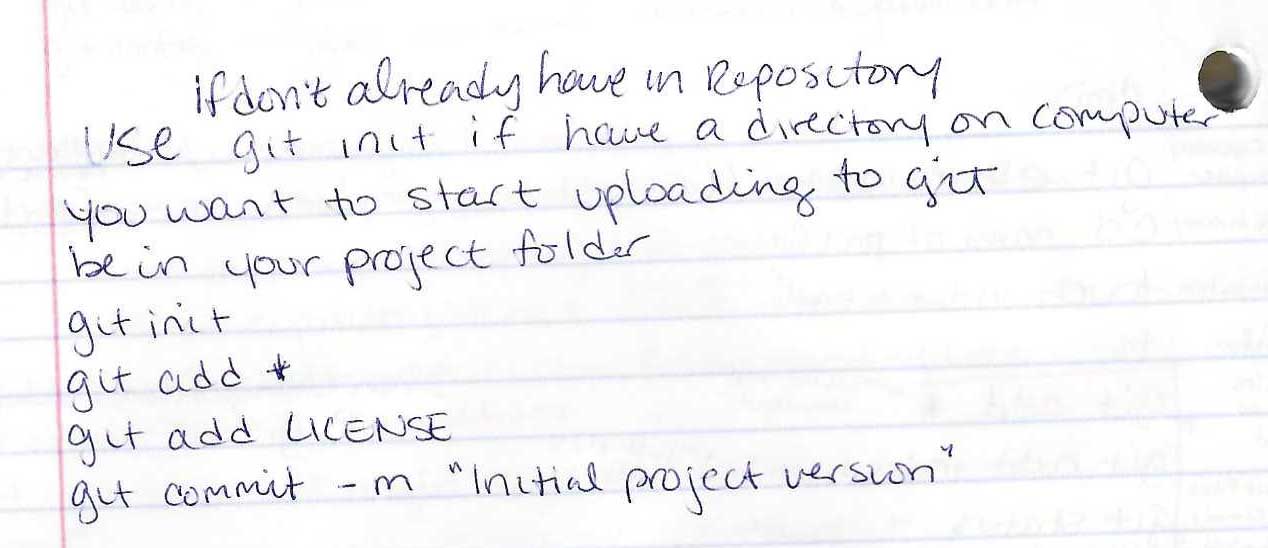 If don't already have in Repository
Use git init if have a directory on computer
you want to start uploading to git
be in your project folder
git init
git add *
git add LICENSE
git commit -m "Initial project version"